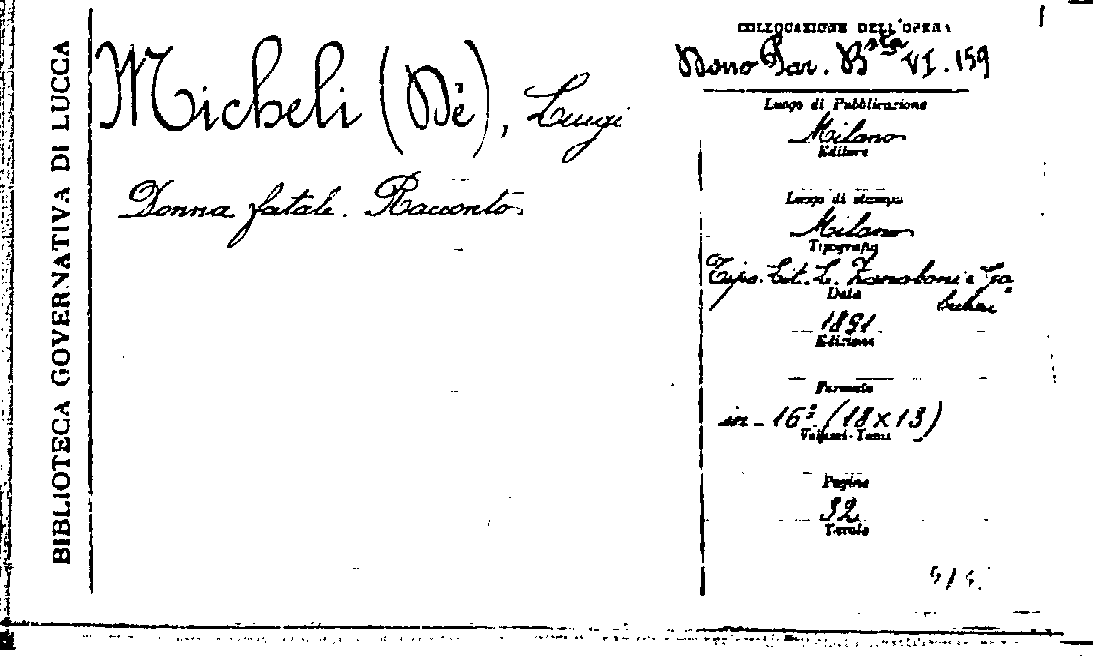 BIBLIOTECA GOVERNATIVA DI LUCCA
Micheli (Dè), Luigi
Donna fatale. Racconto.
COLLOCAZIONE DELL'OPERA
Dono Par. Bsta VI. 159
Luogo di Pubblicazione
Milano
Editore
Luogo di stampa
Milano
Tipografia
Tipo. Lit. L. Zanaboni e Ga
Data
buzzi
1891
Edizione
Formato
in-16º (18x13)
Volumi-Tomi
Pagine
32
Tavole